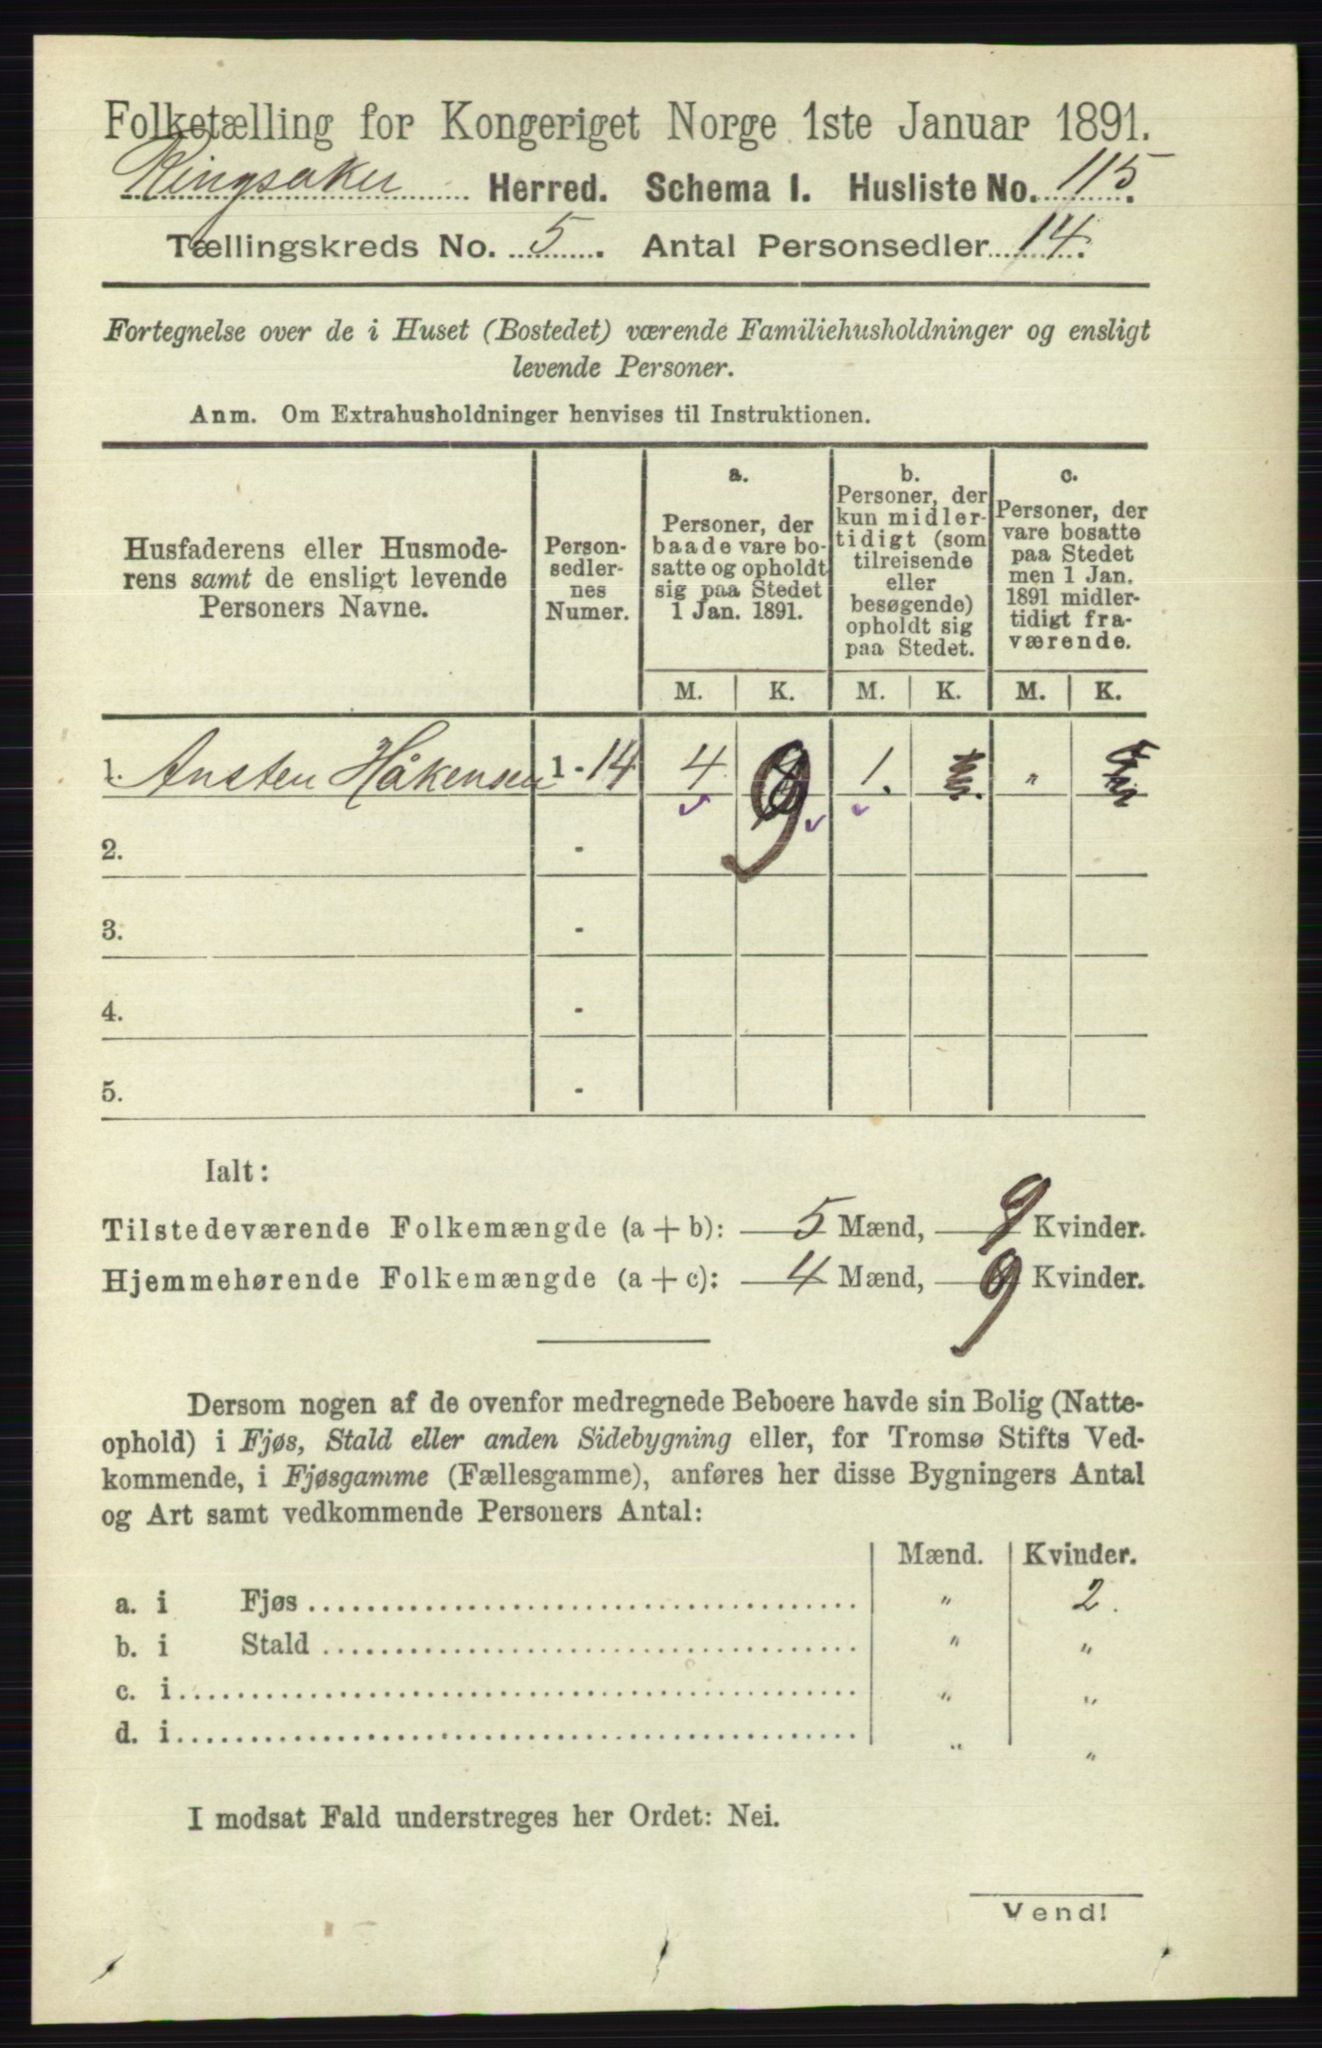 Folketælling for Kongeriget Norge 1ste Januar 1891.
Ringsaker Herred. Schema I. Husliste No. 115.
Tællingskreds No. 5. Antal Personsedler 14.
Fortegnelse over de i Huset (Bostedet) værende Familiehusholdninger og ensligt
levende Personer.
Anm. Om Extrahusholdninger henvises til Instruktionen.
Husfaderens eller Husmode-
rens samt de ensligt levende
Personers Navne.
Person-
sedler-
nes
Numer.
a.
Personer, der
baade vare bo-
satte og opholdt
sig paa Stedet
1 Jan. 1891.
b.
Personer, der
kun midler-
tidigt (som
tilreisende
eller
besøgende)
opholdt sig
paa Stedet.
c.
Personer, der
vare bosatte
paa Stedet
men 1 Jan.
1891 midler-
tidigt fra-
værende.
M. K. M. K. M. K.
1. Ansten Håkensen 1 - 14 4 9 1. "
2. -
3. -
4. -
5. -
Ialt:
Tilstedeværende Folkemængde (a + b): 5 Mænd, 9 Kvinder.
Hjemmehørende Folkemængde (a + c): 4 Mænd, 9 Kvinder.
Dersom nogen af de ovenfor medregnede Beboere havde sin Bolig (Natte-
ophold) i Fjøs, Stald eller anden Sidebygning eller, for Tromsø Stifts Ved-
kommende, i Fjøsgamme (Fællesgamme), anføres her disse Bygningers Antal
og Art samt vedkommende Personers Antal:
Mænd. Kvinder.
a. i Fjøs " 2.
b. i Stald " "
c. i " "
d. i " "
I modsat Fald understreges her Ordet: Nei.
Vend!